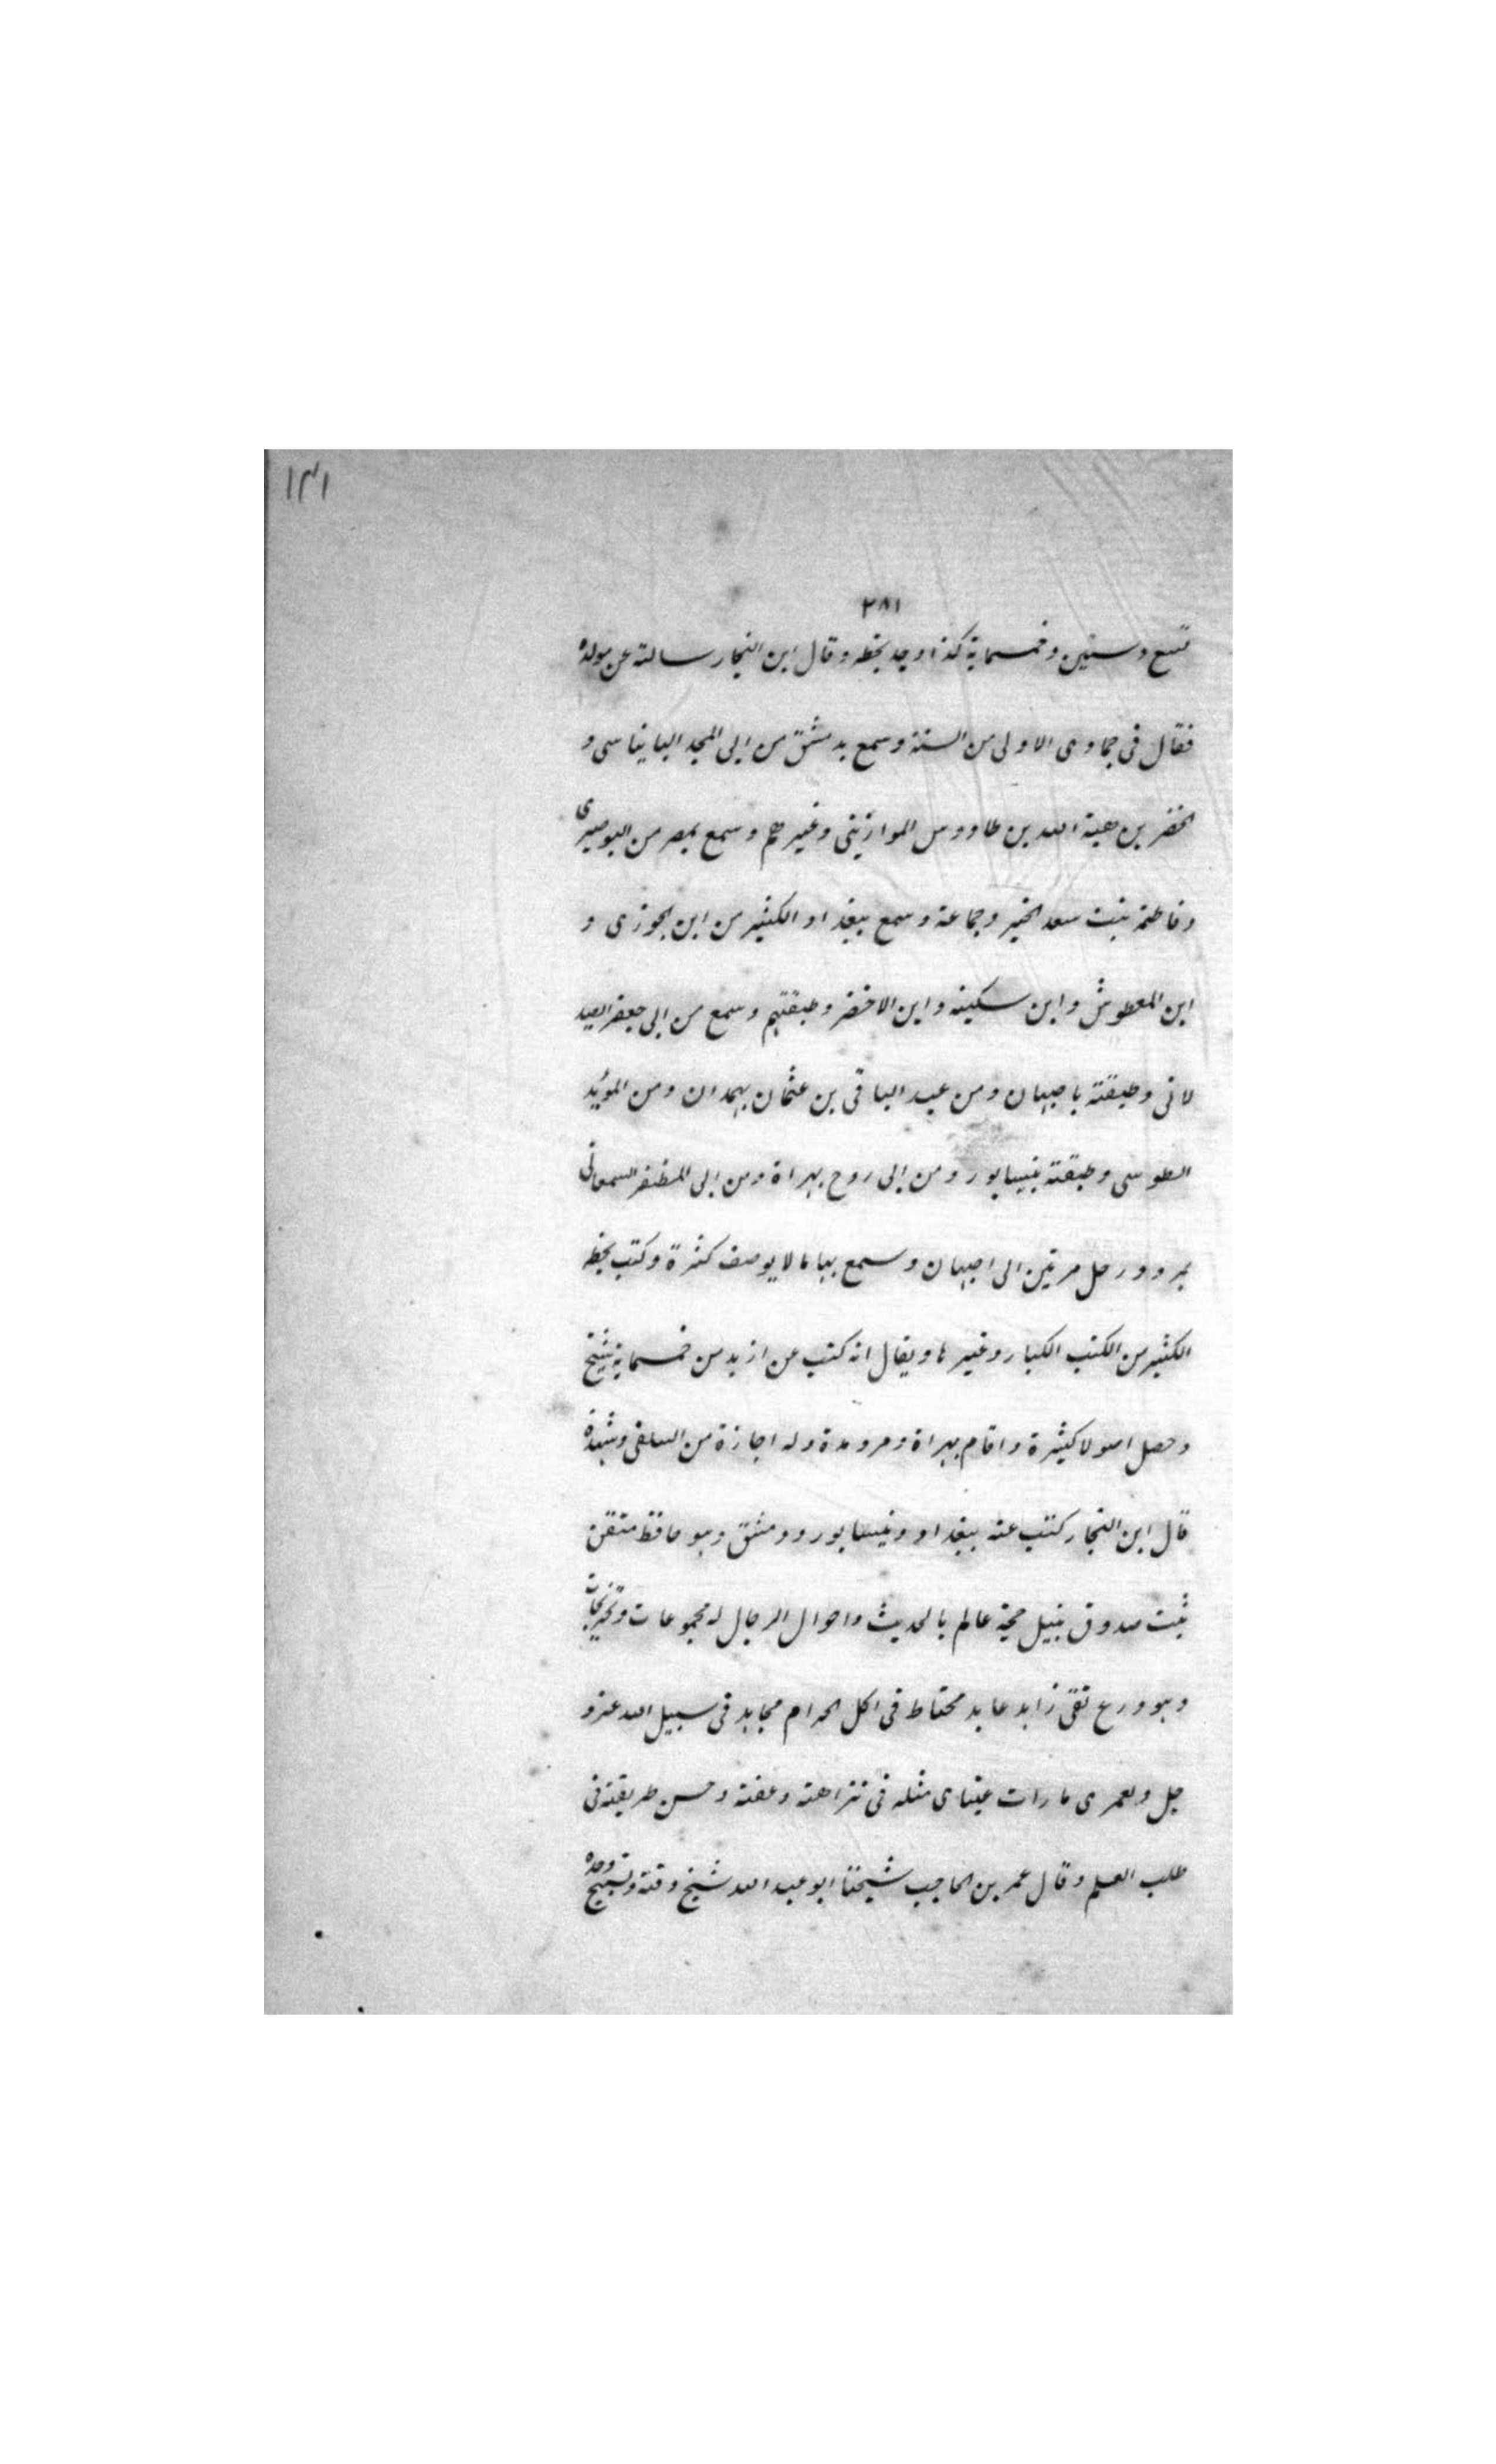 ١٣١
٢٨١
تسع وستين وخمسماية كذا وجد بخطه وقال ابن النجار سالته عن مولده
فقال فى جمادى الاولى من السنة وسمع بدمشق من ابى المجد البانياسى و
الخضر بن هبة الله بن طاووس الموازينى وغيرهم وسمع بمصر من البوصيرى
وفاطمة بنت سعد الخير وجماعة وسمع ببغداد الكثير من ابن الجوزى و
ابن المعطوش وابن سكينه وابن الاخضر وطبقتهم وسمع من ابى جعفر الصيد
لانى وطبقته باصبهان ومن عبد الباقى بن عثمان بهمدان ومن المويد
الطوسى وطبقته بنيسابور ومن ابى روح بهراة ومن ابى المظفر السمعانى
بمرو ورحل مرتين الى اصبهان وسمع بها ما لا يوصف كثرة وكتب بخطه
الكثير من الكتب الكبار وغيرها ويقال انه كتب عن ازيد من خمسماية شيخ
وحصل اصولا كثيرة واقام بهراة ومرو مدة وله اجازة من السلفى وشهدة
قال ابن النجار كتبت عنه ببغداد ونيسابور ودمشق وهو حافظ متقن
ثبت صدوق نبيل حجة عالم بالحديث واحوال الرجال له مجموعات وتخريجات
وهو ورع تقى زاهد عابد محتاط فى اكل الحرام مجاهد فى سبيل الله عز و
جل ولعمرى ما رات عيناى مثله فى نزاهته وعفته وحسن طريقته فى
طلب العلم وقال عمر بن الحاجب شيخنا ابو عبد الله شيخ وقته ونسيج وحده